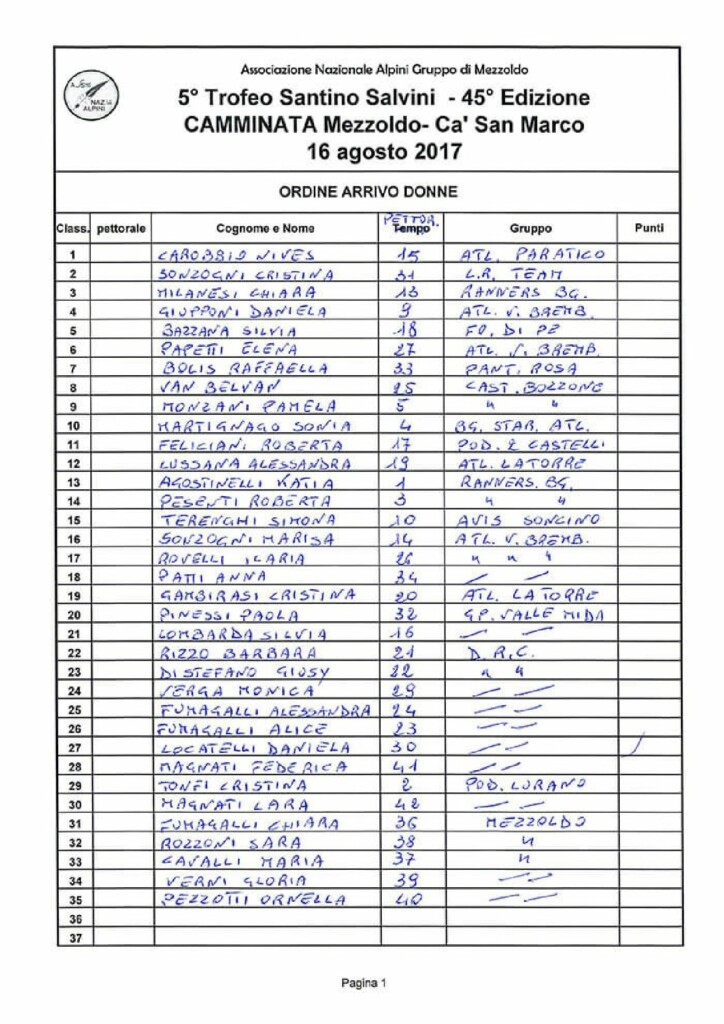 Associazione Nazionale Alpini Gruppo di Mezzoldo
5° Trofeo Santino Salvini - 45° Edizione
CAMMINATA Mezzoldo- Ca' San Marco
16 agosto 2017
ORDINE ARRIVO DONNE
Class. pettorale Cognome e Nome PETTOR. Tempo Gruppo Punti
1 CAROBBIO NIVES 15 ATL. PARATICO
2 SONZOGNI CRISTINA 31 L.R. TEAM
3 MILANESI CHIARA 13 RANNERS BG.
4 GIUPPONI DANIELA 9 ATL. V. BREMB.
5 BAZZANA SILVIA 18 FO. DI PE
6 PAPETTI ELENA 27 ATL. V. BREMB.
7 BOLIS RAFFAELLA 33 PANT. ROSA
8 VAN BELVAN 25 CAST. BOZZONE
9 MONZANI PAMELA 5 " "
10 MARTIGNAGO SONIA 4 BG. STAR. ATL.
11 FELICIANI ROBERTA 17 POD. 2 CASTELLI
12 LUSSANA ALESSANDRA 19 ATL. LA TORRE
13 AGOSTINELLI KATIA 1 RANNERS. BG.
14 PESENTI ROBERTA 3 " "
15 TERENGHI SIMONA 10 AVIS SONCINO
16 SONZOGNI MARISA 14 ATL. V. BREMB.
17 ROVELLI ILARIA 26 " " "
18 PATTI ANNA 34 — —
19 GAMBIRASI CRISTINA 20 ATL. LA TORRE
20 PINESSI PAOLA 32 GP. VALLE
21 LOMBARDA SILVIA 16 — —
22 RIZZO BARBARA 21 D.R.C.
23 DI STEFANO GIUSY 22 " "
24 VERGA MONICA 29 — —
25 FUMAGALLI ALESSANDRA 24 — —
26 FUMAGALLI ALICE 23 — —
27 LOCATELLI DANIELA 30 — — /
28 MAGNATI FEDERICA 41 — —
29 TONFI CRISTINA 2 POD. LURANO
30 MAGNATI LARA 42 — —
31 FUMAGALLI CHIARA 36 MEZZOLDO
32 ROZZONI SARA 38 "
33 CAVALLI MARIA 37 "
34 VERNI GLORIA 39 — —
35 PEZZOTTI ORNELLA 40 — —
36
37
Pagina 1